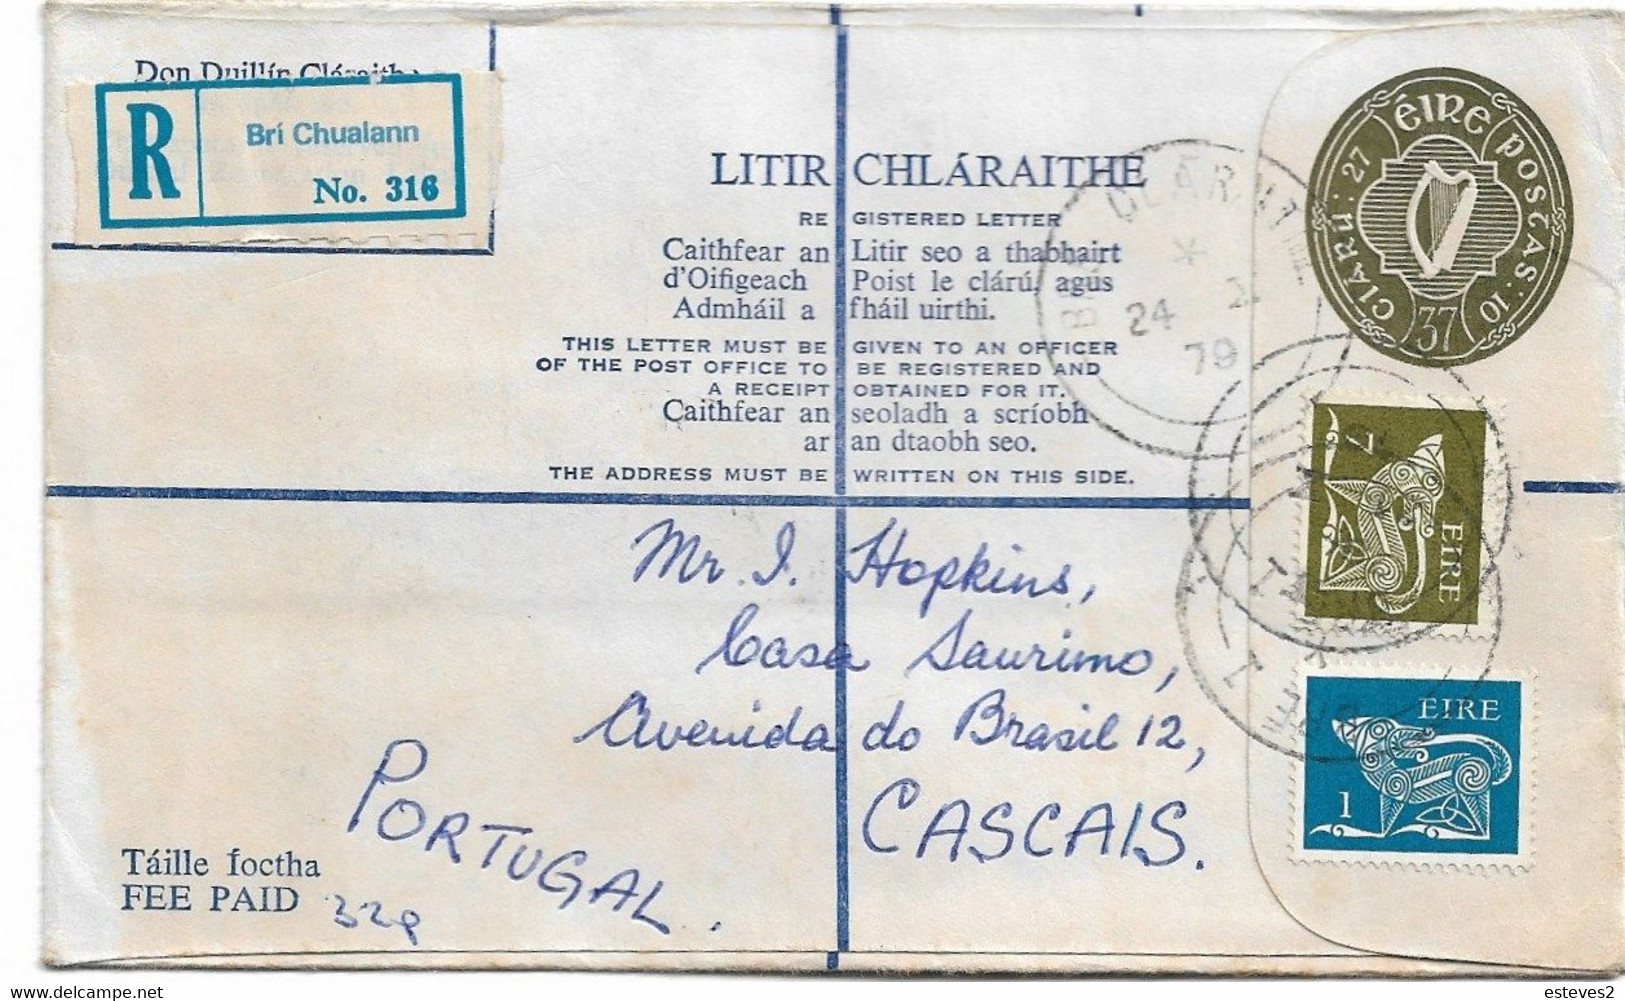 Don Duillín Cláraithe
R
Brí Chualann
No. 316
LITIR CHLÁRAITHE
REGISTERED LETTER
Caithfear an Litir seo a thabhairt
d'Oifigeach Poist le clárú, agus
Admháil a fháil uirthi.
THIS LETTER MUST BE GIVEN TO AN OFFICER
OF THE POST OFFICE TO BE REGISTERED AND
A RECEIPT OBTAINED FOR IT.
Caithfear an seoladh a scríobh
ar an dtaobh seo.
THE ADDRESS MUST BE WRITTEN ON THIS SIDE.
éire
Postas: 10
Clárú: 27
37
24
79
7
EIRE
EIRE
1
Mr. I. Hopkins,
Casa Saurimo,
Avenida do Brasil 12,
CASCAIS.
PORTUGAL.
Táille íoctha
FEE PAID 32p
www.delcampe.net
esteves2